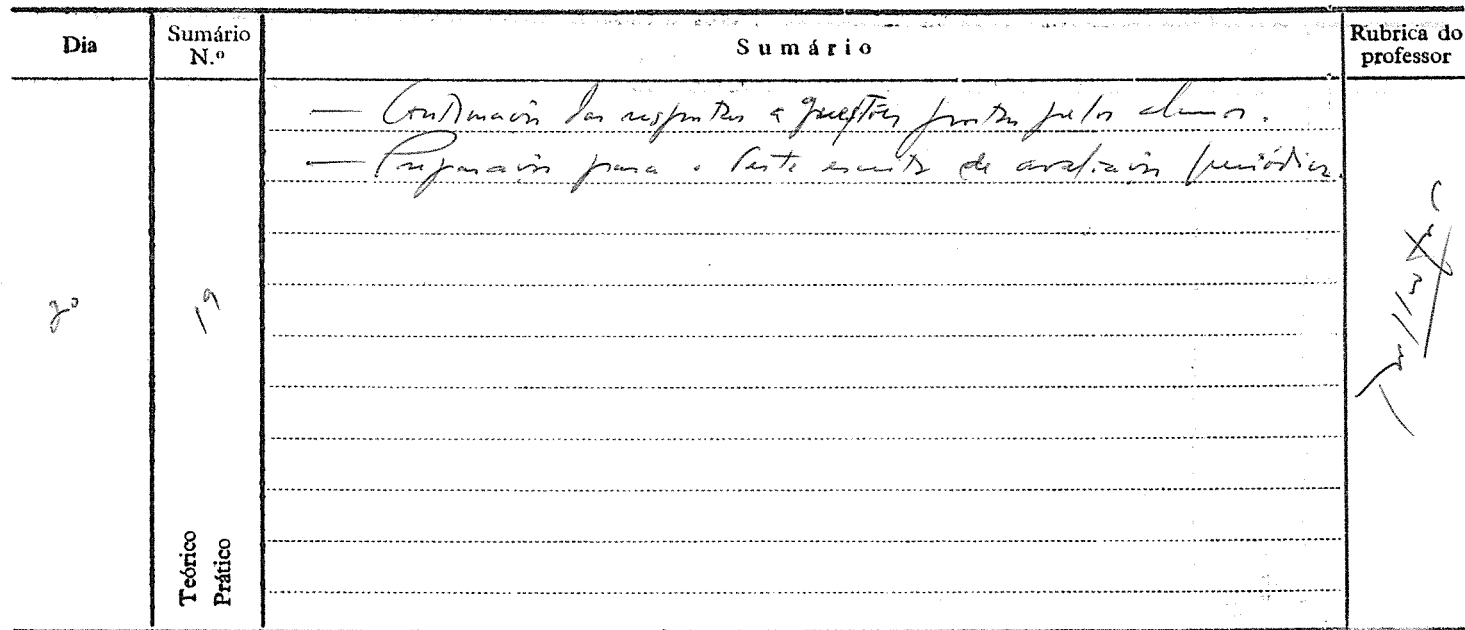 Dia
Sumário N.º
Sumário
Rubrica do professor
— Continuação das respostas a questões postas pelos alunos.
— Preparação para o teste escrito de avaliação periódica.
19
Teórico
Prático